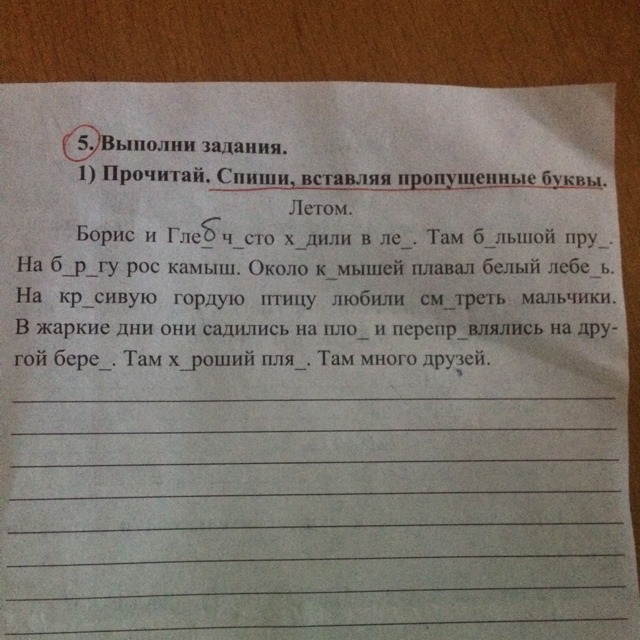 5. Выполни задания.
1) Прочитай. Спиши, вставляя пропущенные буквы.
Летом.
Борис и Глеб ч_сто х_дили в ле_. Там б_льшой пру_.
На б_р_гу рос камыш. Около к_мышей плавал белый лебе_ь.
На кр_сивую гордую птицу любили см_треть мальчики.
В жаркие дни они садились на пло_ и перепр_влялись на дру-
гой бере_. Там х_роший пля_. Там много друзей.